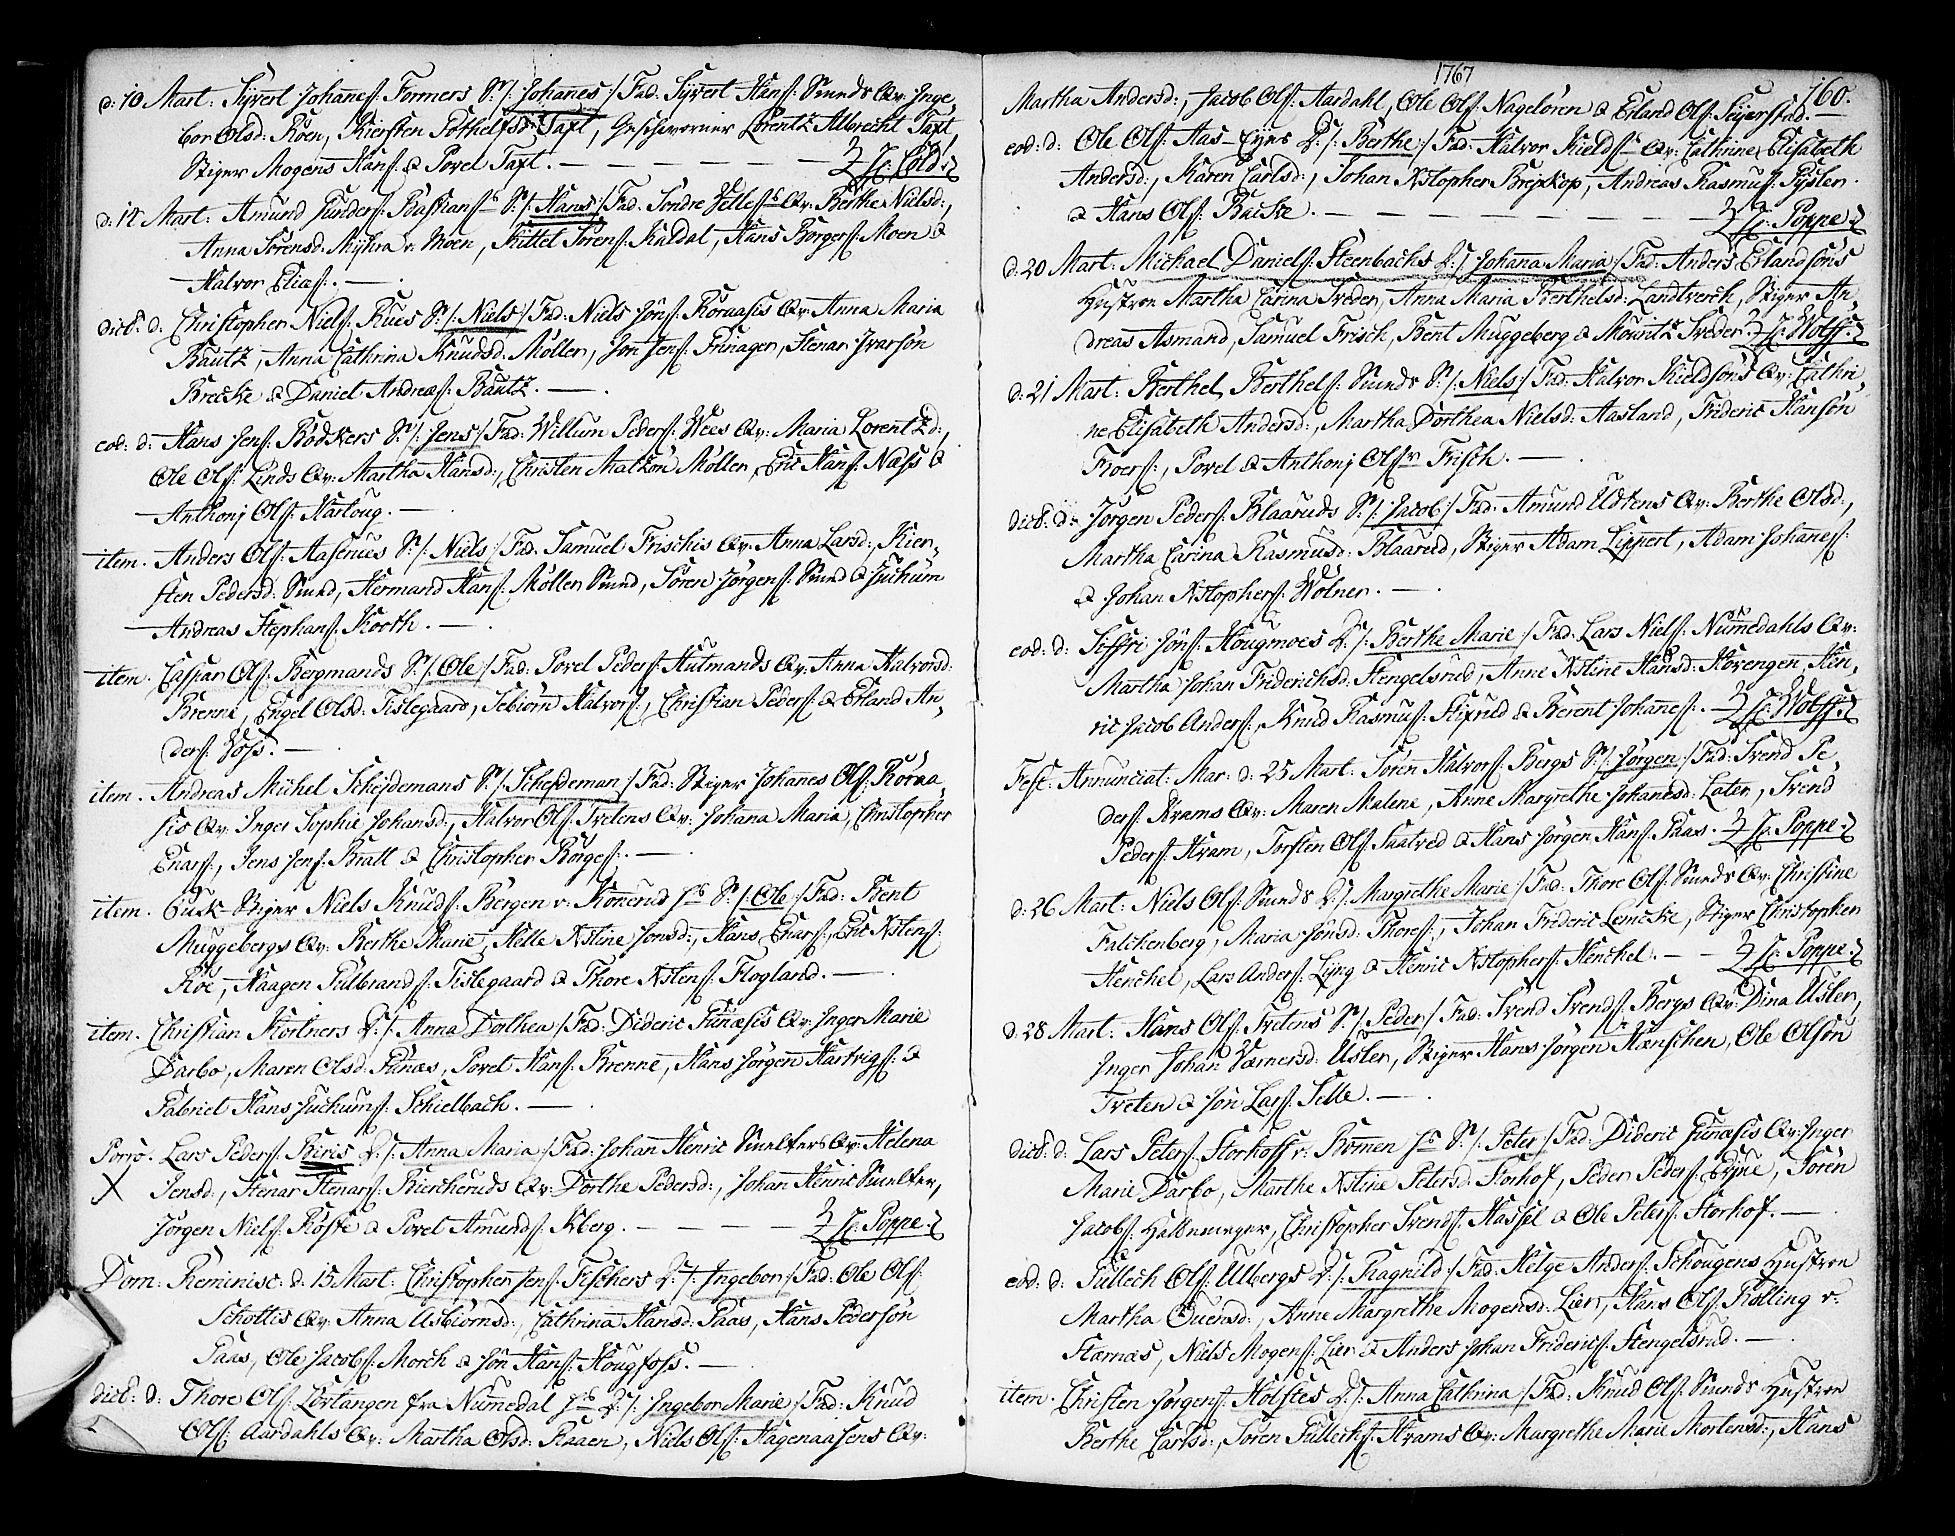 d: 10 Mart: Syvert Johanes: Formers S: /: Johanes :/ Fad: Syvert Hans: Smeds Qv: Inge-
bor Olsd: Roen, Kiersten Gothelfsd: Taxt, Geschworner Lorentz Albrecht Taxt,
Stiger Mogens Hans: & Povel Taxt. — — — — — Hr: Cold:
d: 14 Mart: Amund Gunders: Bastians: S: /: Hans :/ Fad: Sondre Jelles: Qv: Berthe Nielsd:,
Anna Sörensd: Myhra v: Moen, Kittel Sörens: Kaldal, Hans Borgers: Moen &
Halvor Elias: . —
dict: d: Christopher Niels: Rues S: /: Niels :/ Fad: Niels Jöns: Koraasis Qv: Anna Maria
Bautz, Anna Cathrina Knudsd: Möller, Jon Jens: Funager, Stenar Ivarsön
Brecke & Daniel Andreæs: Bautz. —
eod: d: Hans Jens: Bödkers S: /: Jens :/ Fad: Willum Peders: Wees Qv: Maria Lorentzd:,
Ole Ols: Linds Qv: Martha Hansd:, Christen Matzon Möller, Eric Hans: Næss &
Anthonj Ols: Hartoug. —
item. Anders Ols: Aaserues S: /: Niels :/ Fad: Samuel Frischis Qv: Anna Larsd:, Kier-
sten Pedersd: Smed, Hermand Hans: Möller Smed, Sören Jörgens: Smed & Juchum
Andreas Stephans: Korth. —
item. Caspar Ols: Bergmands S: /: Ole :/ Fad: Povel Peders: Hutmands Qv: Anna Halvorsd:
Brenne, Engel Olsd: Tislegaard, Tebiörn Halvors:, Christian Peders: & Erland An-
ders: Voss. —
item. Andreas Michel Scheydemans S: /: Scheydeman :/ Fad: Stiger Johanes Ols: Koraa-
sis Qv: Inger Sophie Johansd:, Halvor Ols: Tvetens Qv: Johana Maria, Christopher
Enars:, Jens Jens: Bratt & Christopher Börges: . —
item. Gusk Stiger Niels Knuds: Bergen v: Konerud Hs S: /: Ole :/ Fad: Bent
Muggebergs Qv: Berthe Marie, Helle Xstine Jonsd:, Hans Enars:, Eric Xstens:
Röe, Haagen Gulbrands: Tislegaard & Thore Xstens: Flogland. —
item. Christian Körtners D: /: Anna Dorthea :/ Fad: Dideric Funæsis Qv: Inger Marie
Darbo, Maren Olsd: Funæs, Povel Hans: Brenne, Hans Jörgen Hartvigs: &
Gabriel Hans Juchums: Schielbach. —
Porro. Lars Peders: Beris D: /: Anna Maria :/ Fad: Johan Henric Smelters Qv: Helena
X Jensd:, Stenar Stenars: Kiercheruds Qv: Dorthe Pedersd:, Johan Henric Smelter,
Jörgen Niels: Köste & Povel Amunds: Kberg. — — — Hr: Poppe:
Dom: Reminisc: d: 15 Mart: Christopher Jens: Fischers D: /: Ingebor :/ Fad: Ole Ols:
Schottis Qv: Anna Asbiörnsd:, Cathrina Hansd: Paas, Hans Pedersön
Paas, Ole Jacobs: Morch & Jön Hans: Hougfoss. —
dict: d: Thore Ols: Lostangen fra Numedal Hs D: /: Ingebor Marie :/ Fad: Knud
Ols: Aardahls Qv: Martha Olsd: Raaen, Niels Ols: Hagenaasens Qv:
1767
160.
Martha Andersd:, Jacob Ols: Aardahl, Ole Ols: Nagelören & Erland Ols: Seyerstad. —
eod: d: Ole Ols: Aas-Eyes D: /: Berthe :/ Fad: Halvor Kields: Qv: Cathrine Elisabeth
Andersd:, Karen Carlsd:, Johan Xstopher Brejkop, Andreas Rasmus: Gysler
& Hans Ols: Backe. — — — — — Hr: Poppe:
d: 20 Mart: Michael Daniels: Steenbachs D: /: Johana Maria :/ Fad: Anders Erlandsöns
Hustroe Martha Carina Sveder, Anna Maria Berthelsd: Landtverck, Stiger An-
dreas Asmand, Samuel Frisch, Bent Muggeberg & Mouritz Sveder. Hr: Wolff:
d: 21 Mart: Berthel Berthels: Smeds S: /: Niels :/ Fad: Halvor Kieldsöns Qv: Cathri-
ne Elisabeth Andersd:, Martha Dorthea Nielsd: Aasland, Frideric Hansön
Froers:, Povel & Anthonj Ols: Frisch. —
dict: d: Jörgen Peders: Blaaruds S: /: Jacob :/ Fad: Amund Udtens Qv: Berthe Olsd:,
Martha Carina Rasmusd: Blaarud, Stiger Adam Lippert, Adam Johanes:
& Johan Xstophers: Wölner. —
eod: d: Siffri Jöns: Hougmoes D: /: Berthe Marie :/ Fad: Lars Niels: Numedahls Qv:
Martha Johan Friderichsd: Stengelsrud, Anne Xstine Hansd: Korengen, Hen-
ric Jacob Anders:, Knud Rasmus: Stixrud & Berent Johanes: . — Hr: Wolff:
Fest: Annunciat: Mar: d: 25 Mart: Sören Halvors: Bergs S: /: Jörgen :/ Fad: Svend Pe-
ders: Krams Qv: Maren Malene, Anne Margrethe Johanesd: Later, Svend
Peders: Kram, Torsten Ols: Saatved & Hans Jörgen Hans: Paas. Hr: Poppe:
d: 26 Mart: Niels Ols: Smeds D: /: Margrethe Marie :/ Fad: Thore Ols: Smeds Qv: Christine
Falckenberg, Maria Jonsd: Thores:, Johan Frideric Lemcke, Stiger Christopher
Henckel, Lars Anders: Lyng & Henric Xstophers: Henckel. — — Hr: Poppe:
d: 28 Mart: Hans Ols: Tvetens S: /: Peder :/ Fad: Svend Svends: Bergs Qv: Dina Usler,
Inger Johan Værnersd: Usler, Stiger Hans Jörgen Hænschen, Ole Olsön
Tveten & Jon Lars: Telle. —
dict: d: Lars Peters: Storhoff v: Bomen Hs S: /: Peter :/ Fad: Dideric Funæsis Qv: Inger
Marie Darbo, Marthe Xstine Petersd: Storhof, Peder Peders: Eyne, Sören
Jacobs: Hattemager, Christopher Svends: Hassel & Ole Peters: Storhof. —
eod: d: Gullech Ols: Ulbergs D: /: Ragnild :/ Fad: Helge Anders: Schougens Hustroe
Martha Ouensd:, Anne Margrethe Mogensd: Lier, Hans Ols: Kolling v:
Stærnæs, Niels Mogens: Lier & Anders Johan Friderics: Stengelsrud. —
item. Christen Jörgens: Holstes D: /: Anna Cathrina :/ Fad: Knud Ols: Smeds Hustroe
Berthe Carlsd:, Sören Gullecks: Krams Qv: Margrethe Marie Mortensd:, Hans